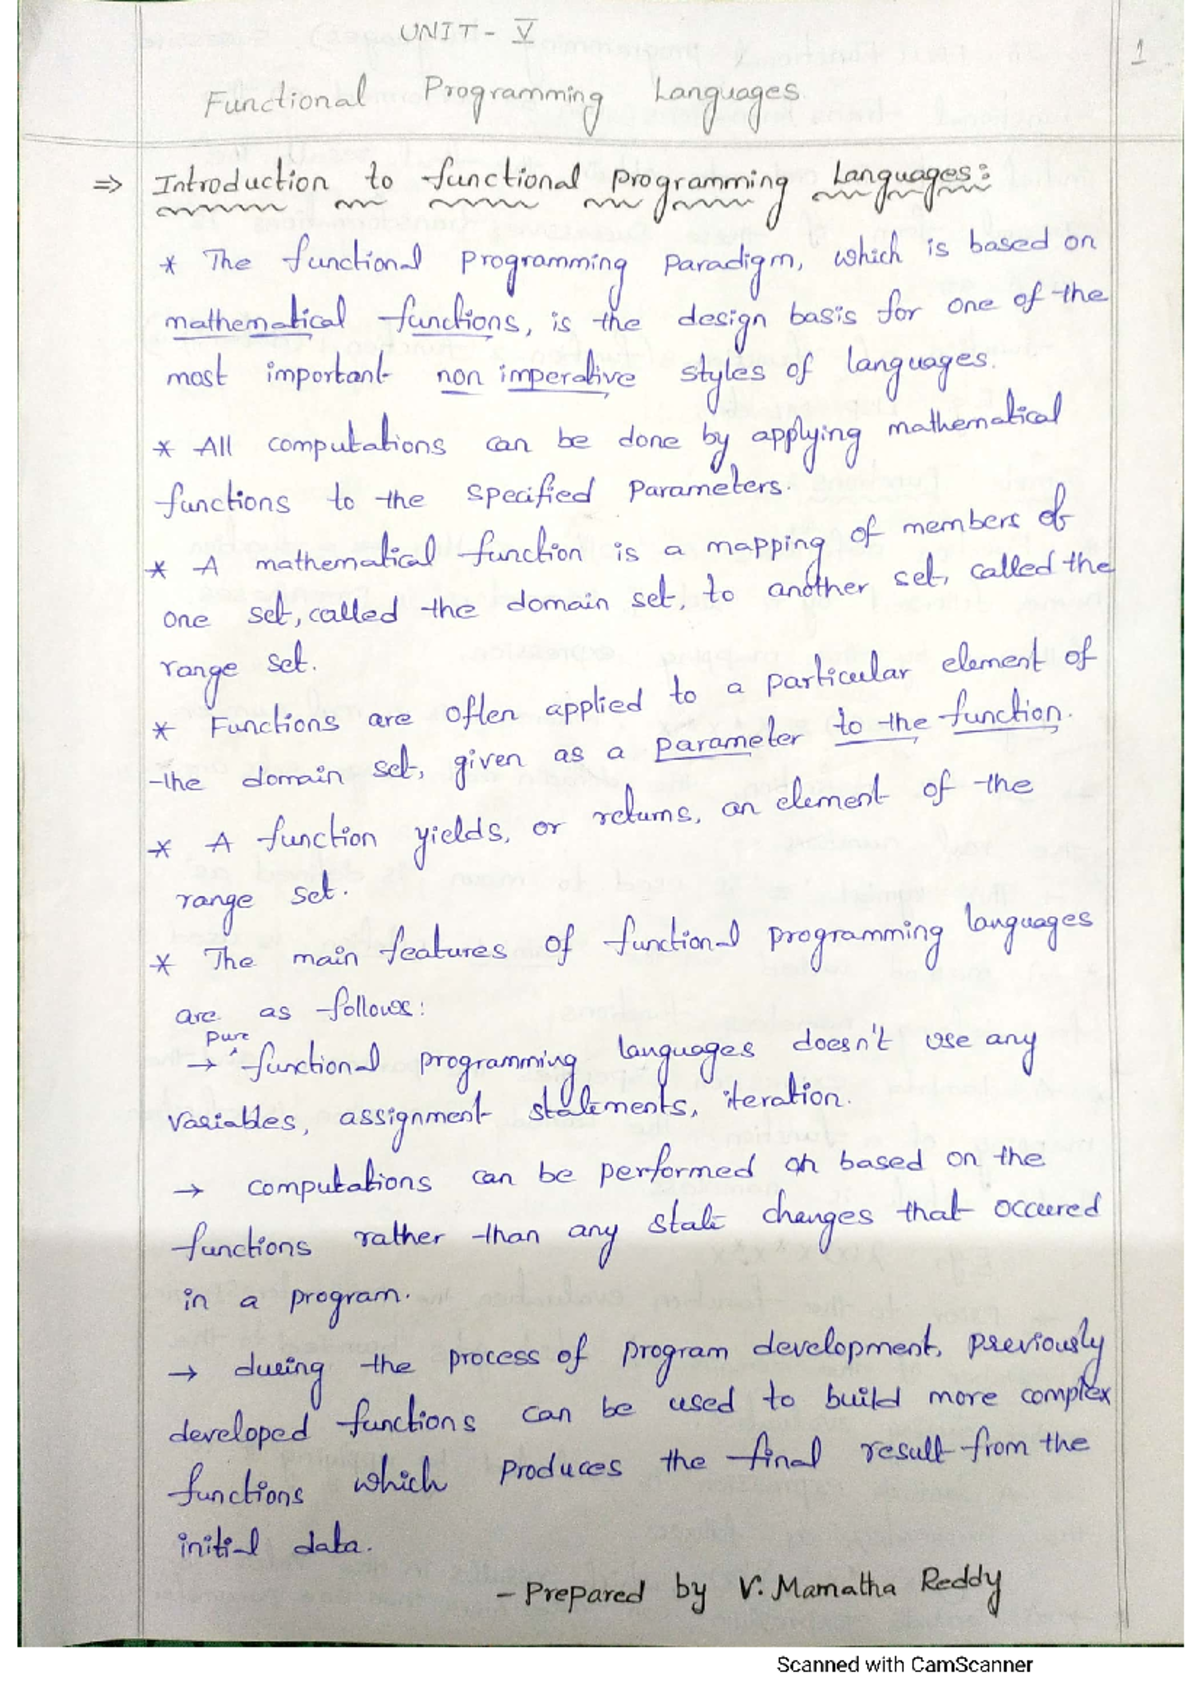 UNIT - V
1
Functional Programming Languages.
⇒ Introduction to functional programming Languages:
* The functional programming paradigm, which is based on
mathematical functions, is the design basis for one of the
most important non imperative styles of languages.
* All computations can be done by applying mathematical
functions to the specified parameters.
* A mathematical function is a mapping of members of
one set, called the domain set, to another set, called the
range set.
* Functions are often applied to a particular element of
the domain set, given as a parameter to the function.
* A function yields, or returns, an element of the
range set.
* The main features of functional programming languages
are as follows:
→ pure functional programming languages doesn't use any
variables, assignment statements, iteration.
→ computations can be performed based on the
functions rather than any state changes that occured
in a program.
→ during the process of program development, previously
developed functions can be used to build more complex
functions which produces the final result from the
initial data.
- Prepared by V. Mamatha Reddy
Scanned with CamScanner